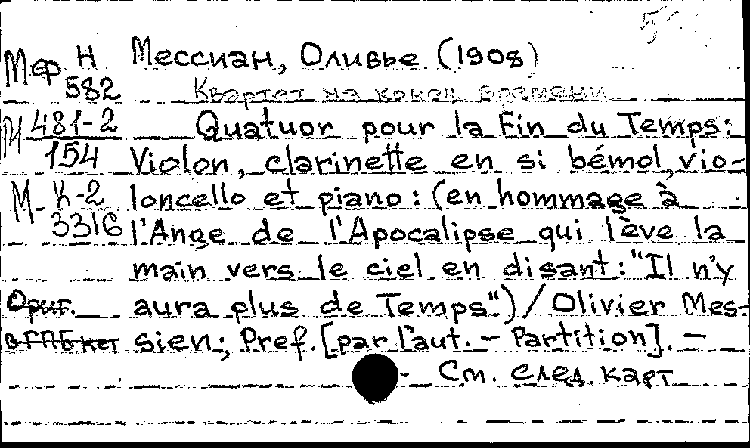 Мф Н Мессиан, Оливье (1908)
582 Квартет на конец времени
М 481-2 Quatuor pour la Fin du Temps:
154 Violon, clarinette en si bémol, vio-
М- К-2 loncello et piano: (en hommage à
3316 l'Ange de l'Apocalipse qui lève la
main vers le ciel en disant: "Il n'y
Ориг. aura plus de Temps".) / Olivier Mes-
в ГПБ нет sien; Pref. [par l'aut. - Partition]. -
- См. след. карт